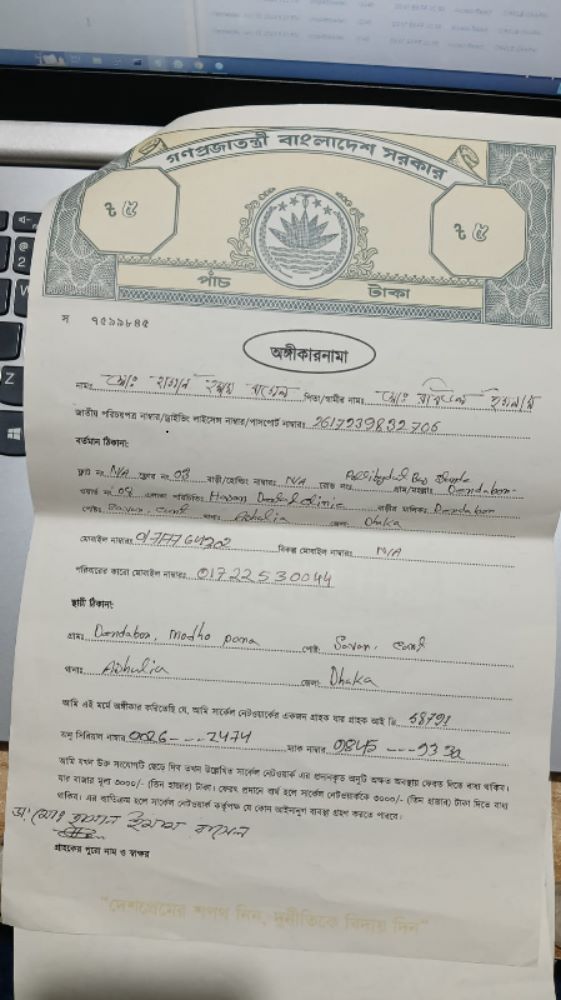 গণপ্রজাতন্ত্রী বাংলাদেশ সরকার
৳ ৫
৳ ৫
পাঁচ টাকা
স ৭৫৯৯৮৪৫
অঙ্গীকারনামা
নামঃ মোঃ হাসান ইমাম রাসেল পিতা/স্বামীর নামঃ মোঃ ইসলাম
জাতীয় পরিচয়পত্র নাম্বার/ড্রাইভিং লাইসেন্স নাম্বার/পাসপোর্ট নাম্বারঃ 2617239832706
বর্তমান ঠিকানা:
ফ্ল্যাট নং N/A ফ্লোর নং 03 বাড়ী/হোল্ডিং নাম্বারঃ N/A রোড নংঃ Pallibydut গ্রাম/মহল্লাঃ Dendabor
ওয়ার্ড নং 08 এলাকা পরিচিতিঃ Hasan Dental Clinic বাড়ীর মালিকঃ Dendabor
পোষ্টঃ Savar, Cant থানাঃ Ashulia জেলাঃ Dhaka
মোবাইল নাম্বারঃ বিকল্প মোবাইল নাম্বারঃ N/A
পরিবারের কারো মোবাইল নাম্বারঃ 01722530044
স্থায়ী ঠিকানা:
গ্রামঃ Dendabor, modho para পোষ্ট: Savar, Cant
থানাঃ Ashulia জেলা: Dhaka
আমি এই মর্মে অঙ্গীকার করিতেছি যে, আমি সার্কেল নেটওয়ার্কের একজন গ্রাহক যার গ্রাহক আই ডি 58791
অনু সিরিয়াল নাম্বার 0026---2474 ম্যাক নাম্বার 9845 ---
আমি যখন উক্ত সংযোগটি ছেড়ে দিব তখন উল্লেখিত সার্কেল নেটওয়ার্ক এর প্রদানকৃত অনুটি অক্ষত অবস্থায় ফেরত দিতে বাধ্য থাকিব।
যার বাজার মূল্য ৩০০০/- (তিন হাজার) টাকা। ফেরৎ প্রদানে ব্যর্থ হলে সার্কেল নেটওয়ার্ককে ৩০০০/- (তিন হাজার) টাকা দিতে বাধ্য
থাকিব। এর ব্যতিক্রম হলে সার্কেল নেটওয়ার্ক কর্তৃপক্ষ যে কোন আইনানুগ ব্যবস্থা গ্রহণ করতে পারবে।
ডা: মোঃ হাসান ইমাম রাসেল
গ্রাহকের পুরো নাম ও স্বাক্ষর
"দেশপ্রেমের শপথ নিন, দুর্নীতিকে বিদায় দিন"